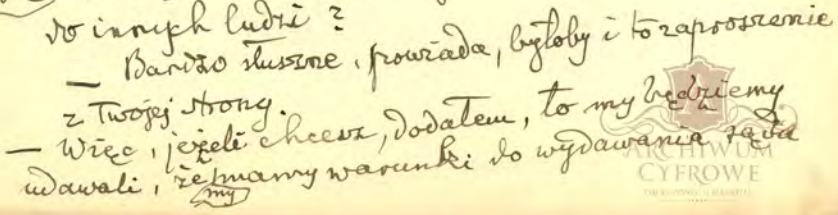 do innych ludzi?
— Bardzo słuszne, powiada, byłoby i to zaproszenie
z Twojej strony.
— Więc, jeżeli chcesz, dodałem, to my będziemy
udawali, że mamy warunki do wydawania sądu
my
ARCHIWUM
CYFROWE